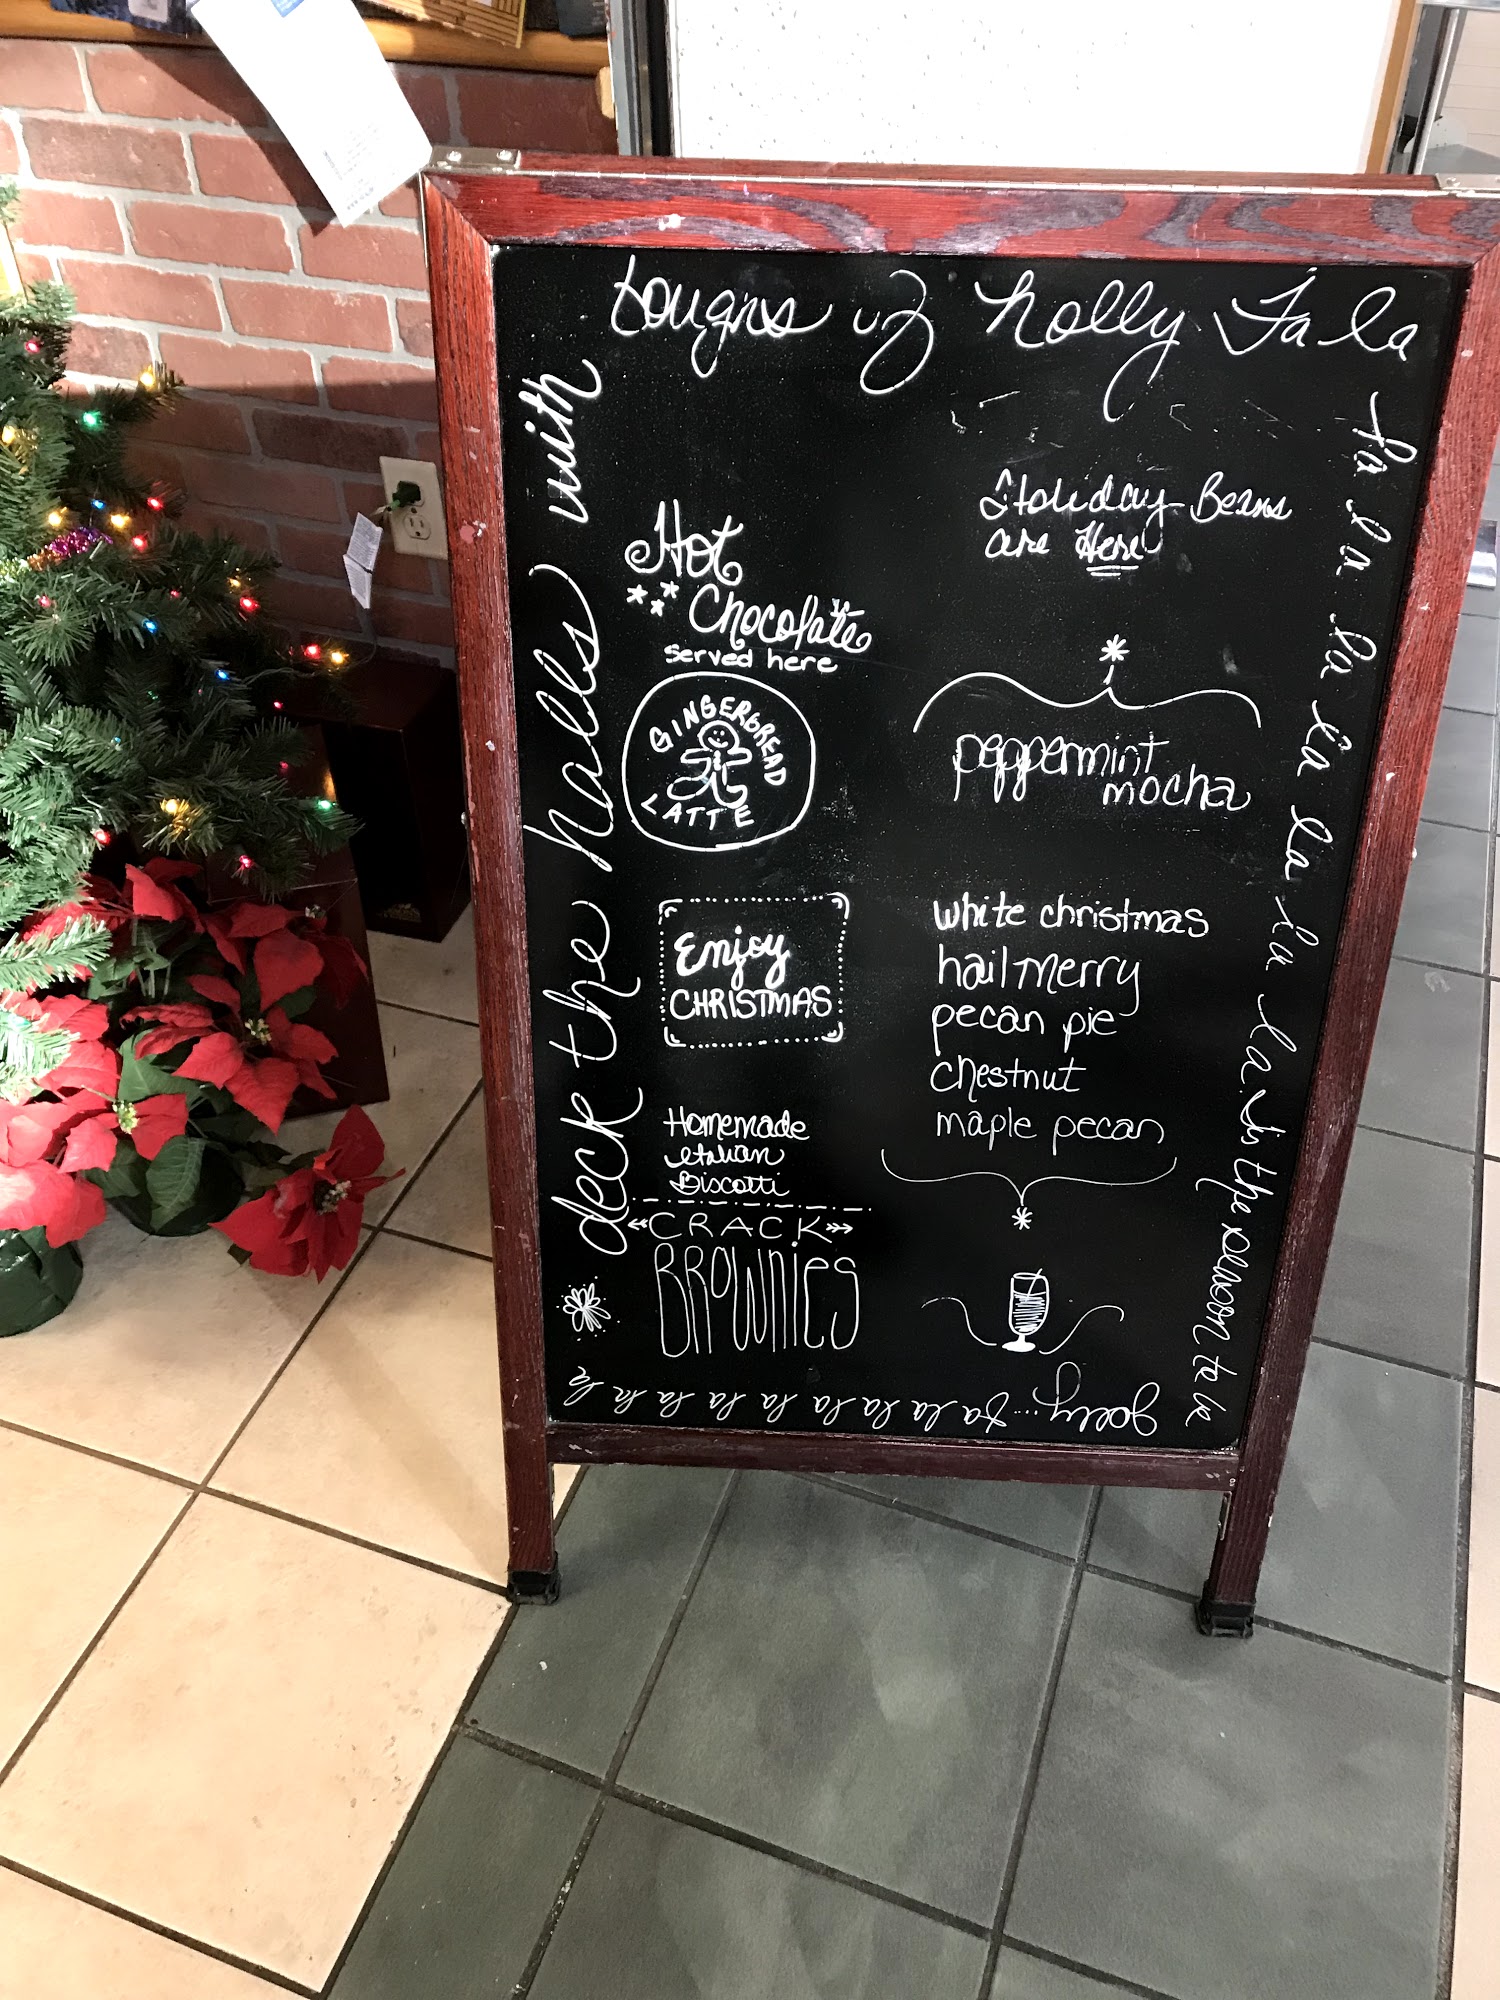 deck the halls with
boughs of holly Fa la
fa la la la la la la la. tis the season to be
jolly... fa la la la la la la la la
Hot
Chocolate
served here
GINGERBREAD
LATTE
Enjoy
CHRISTMAS
Homemade
Italian
Biscotti
CRACK
BROWNIES
Holiday Beans
are Here
peppermint
mocha
white christmas
hail merry
pecan pie
chestnut
maple pecan